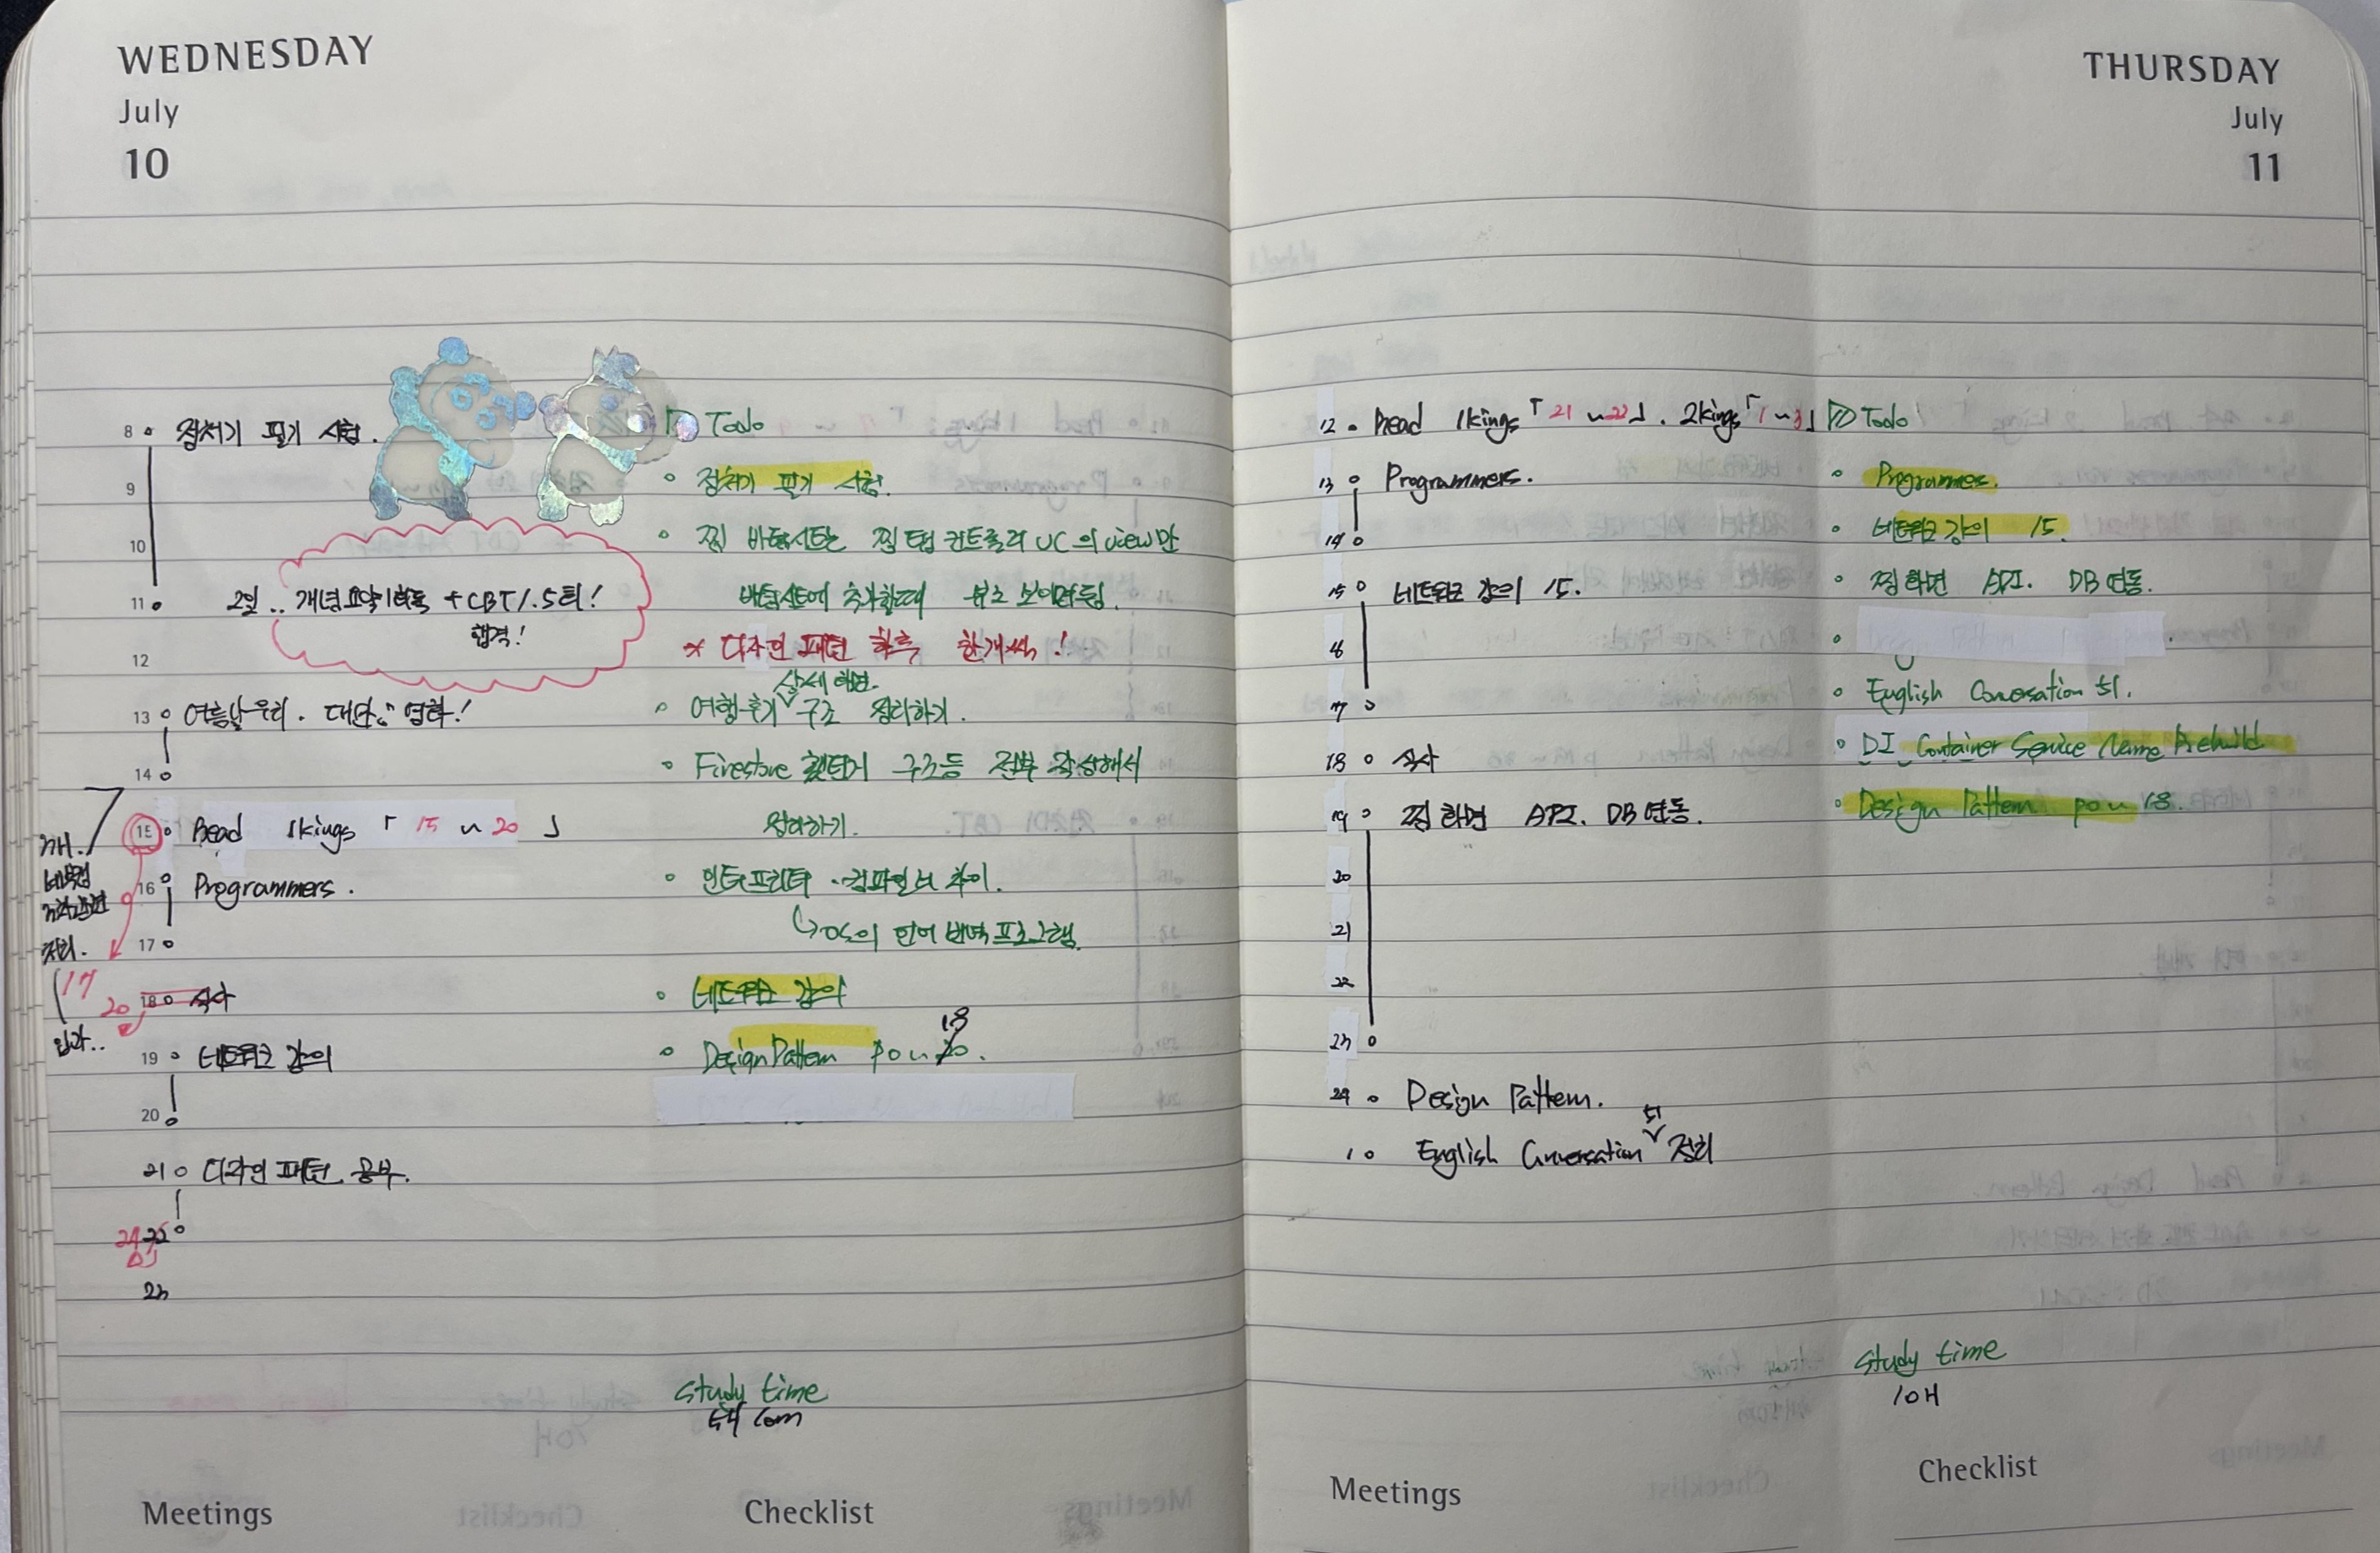 WEDNESDAY
July
10
8 정처기 필기 시험.
9
10
11 2일.. 개념요약 1회독 + CBT 1.5회!
합격!
12
13 여름날 우리. 대만 영화!
14
15 Read 1kings 「 15 ~ 20 」
16 Programmers.
17
17
20
18 식사
19 네트워크 강의
20
21 디자인 패턴 공부.
22
23
Todo
정처기 필기 시험.
찜 바텀시트는 찜 탭 컨트롤러 UC의 view만
바텀시트에 추가할때
* 디자인 패턴 학습 한개씩!
상세 화면.
여행 후기 구조 정리하기.
Firestore 챗터기 구조등 전부 작성해서
정하기.
인터프리터 · 컴파일러 차이.
OS의 언어 번역 프로그램.
네트워크 강의
18
Design Pattern p0 ~ 20.
study time
Meetings
Checklist
THURSDAY
July
11
12 Read 1kings 「21 ~ 22」. 2kings 「1 ~ 3」
13 Programmers.
14
15 네트워크 강의 15.
16
17
18 식사
19 찜 화면 API. DB 연동.
20
21
22
23
24 Design Pattern.
1 English Conversation 정리
Todo
Programmes.
네트워크 강의 15.
찜 화면 API. DB 연동.
English Conversation 51.
DI Container Service Name Rebuild
Design Pattern p0 ~ 18.
study time
10H
Meetings
Checklist